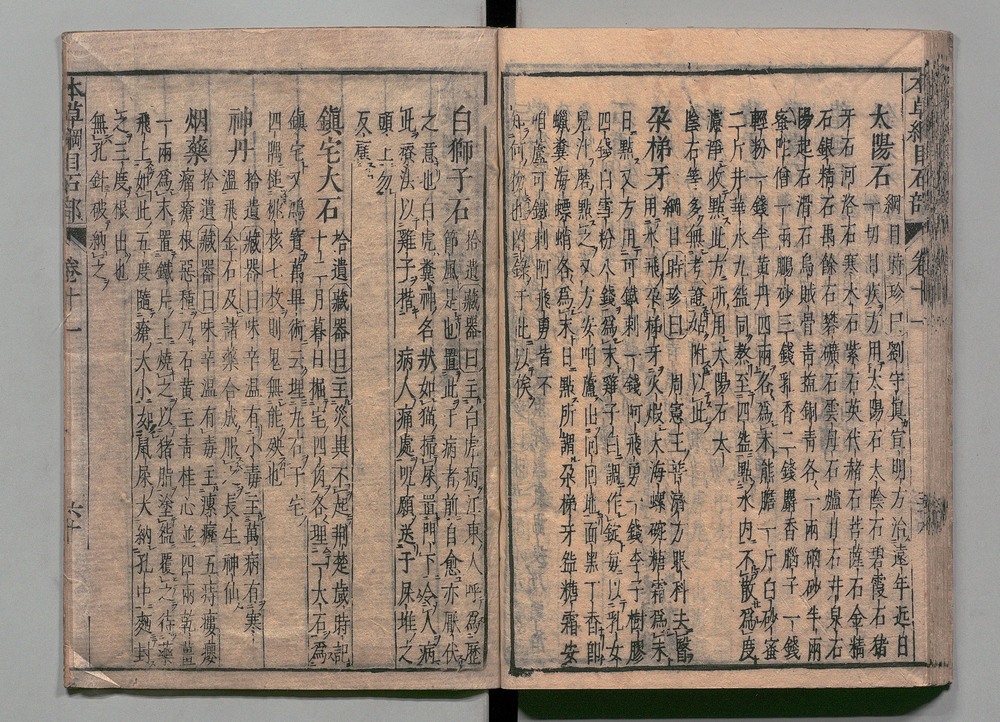 本草綱目石部 卷十一
太陽石綱目時珍曰劉守眞宣明方治遠年近日
一切目疾方用太陽石太陰石碧霞石猪
牙石河洛石寒水石紫石英代赭石菩薩石金精
石銀精石禹餘石礬礦石雲母石爐甘石井泉石
陽起石滑石烏賊骨青鹽銅青各一兩硇砂半兩
蜜陀僧一兩鵬砂三錢乳香二錢麝香腦子一錢
輕粉一錢半黃丹四兩各爲末熊膽一斤白砂蜜
二斤井華水九盌同熬至四盌點水內不散爲度
濾淨收點此方所用太陽石太
陰石等多無考證姑附以此
朶梯牙綱目時珍曰周憲王普濟方眼科去瞖
用水飛朶梯牙火煅大海螺碗糖霜爲末
日點又方用可鐵刺一錢阿飛勇一錢李子樹膠
四錢白雪粉八錢爲末雞子白調作錠每以乳女
兒汁磨點之又方安咱蘆出回回地面黑丁香卽
蠟糞海螵蛸各爲末日點所謂朶梯牙盌糖霜安
咱蘆可鐵刺阿飛勇皆不
知何物也附錄于此以俟
白獅子石拾遺藏器曰主白虎病江東人呼爲歷
節風是也置此于病者前自愈亦厭伏
之意也白虎糞神名狀如猫掃屎置門下令人病
此療法以雞子揩病人痛處呪願送于屎堆之
頭上勿
反展
鎭宅大石拾遺藏器曰主災異不起荆楚歲時記
十二月暮日掘宅四角各埋一大石爲
鎭宅又鴻寶萬畢術云埋丸石于宅
四隅槌桃核七枚則鬼無能殃也
神丹拾遺藏器曰味辛温有小毒主萬病有寒
温飛金石及諸藥合成服之長生神仙
烟藥拾遺藏器曰味辛温有毒主瘰癧五痔瘻癭
瘤瘡根惡種乃石黃王青桂心並四兩乾薑
一兩爲末置鐵片上燒之以猪脂塗盌覆之待藥
飛上如此五度隨瘡大小以鼠屎大納孔中麪封
之三度根出也
無孔針破納之
本草綱目石部 卷十一 六十